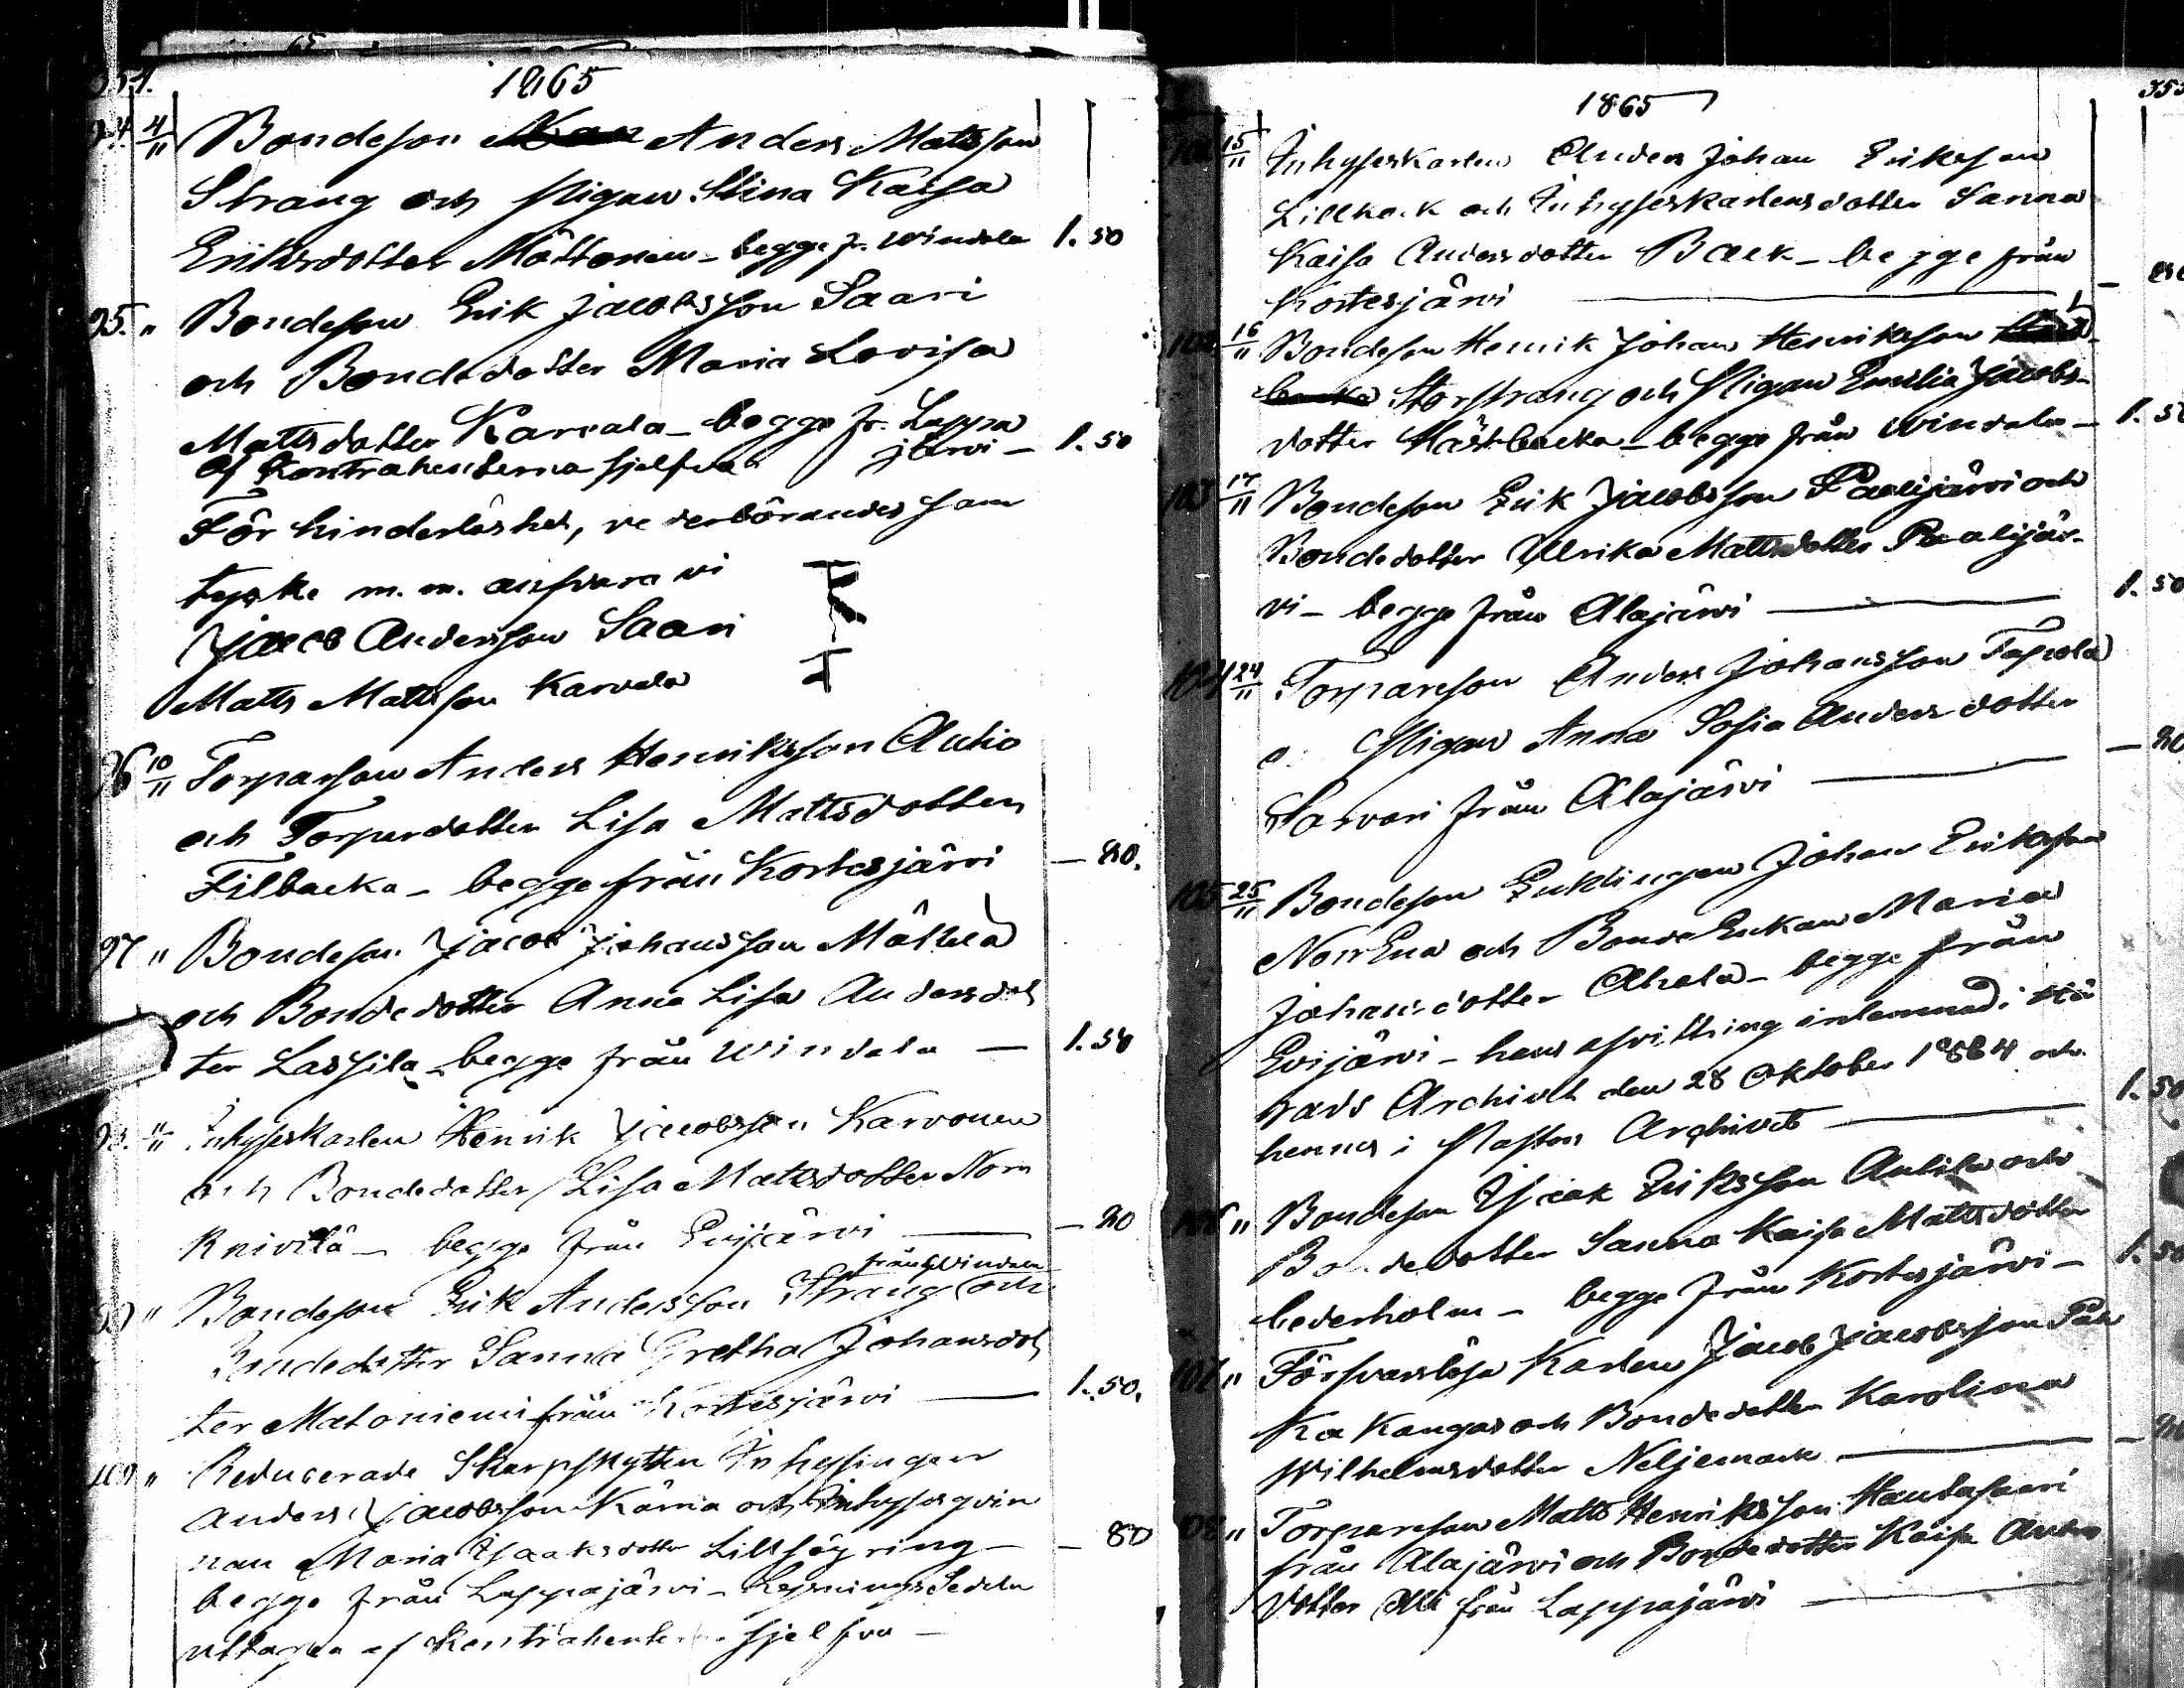 1865
94. 4/11 Bondeson Anders Mattsson
Strang och Pigan Stina Kaisa
Eriksdotter Måttonen - begge fr. Windala 1.50
95. " Bondeson Erik Jacobsson Saari
och Bondedotter Maria Lovisa
Mattsdotter Karvala - begge fr. Lappa
järvi - 1.50
Af Kontrahenterna sjelfva
För hinderlöshet, vederbörandes sam
tycke m. m. ansvara vi
Jacob Andersson Saari
Matts Mattsson Karvala
96 10/11 Torparson Anders Henriksson Autio
och Torparedotter Lisa Mattsdotter
Filbacka - begge från Kortesjärvi - 80.
97 " Bondeson Jacob Johansson Måttela
och Bondedotter Anna Lisa Andersdot
ter Lassila - begge från Windala - 1.50
98. " Inhyseskarlen Henrik Jacobsson Karvonen
och Bondedotter Lisa Mattsdotter Norr
Knivilä - begge från Evijärvi - 80
från Windala
99 " Bondeson Erik Andersson Strang och
Bondedotter Sanna Gretha Johansdot
ter Matoniemi från Kortesjärvi 1.50.
100 " Reducerade Skarpskytten Inhysingen
Anders Jacobsson Kärnä och Inhysesqvin
nan Maria Isaaksdotter Lillsögring -
begge från Lappajärvi - Lysningssedeln - 80
uttagen af Kontrahenterna sjelfva -
1865
353
101 15/11 Inhyseskarlen Anders Johan Eriksson
Lillkock och Inhyseskarlensdotter Sanna
Kaisa Andersdotter Back - begge från
Kortesjärvi - 80
102 16/11 Bondeson Henrik Johan Henriksson
Storstrang och Pigan Emilia Jacobs-
dotter Hästbacka - begge från Windala - 1.50
103 17/11 Bondeson Erik Jacobsson Paalijärvi och
Bondedotter Ulrika Mattsdotter Paalijär-
vi - begge från Alajärvi 1.50
104 24/11 Torpareson Anders Johansson Tapola
o. Pigan Anna Sofia Andersdotter
Sarvari från Alajärvi - 80
105 25/11 Bondeson Enklingen Johan Eriksson
NorrEna och BondeEnkan Maria
Johansdotter Ahola - begge från
Evijärvi - hans afvittring inlemnad i Hä
rads Archivet den 28 Oktober 1864 och
hennes i Pastors Archivet 1.50
106 " Bondeson Isaak Eriksson Antila och
Bondedotter Sanna Kaisa Mattsdotter
Cederholm - begge från Kortesjärvi - 1.50
107 " Försvarslösa Karlen Jacob Jacobsson Puh
ka Kangas och Bondedotter Karolina
Wilhelmsdotter Neljemark - 80
108 " Torpareson Matts Henriksson Hautasaari
från Alajärvi och Bondedotter Kaisa Anders
dotter Olli från Lappajärvi